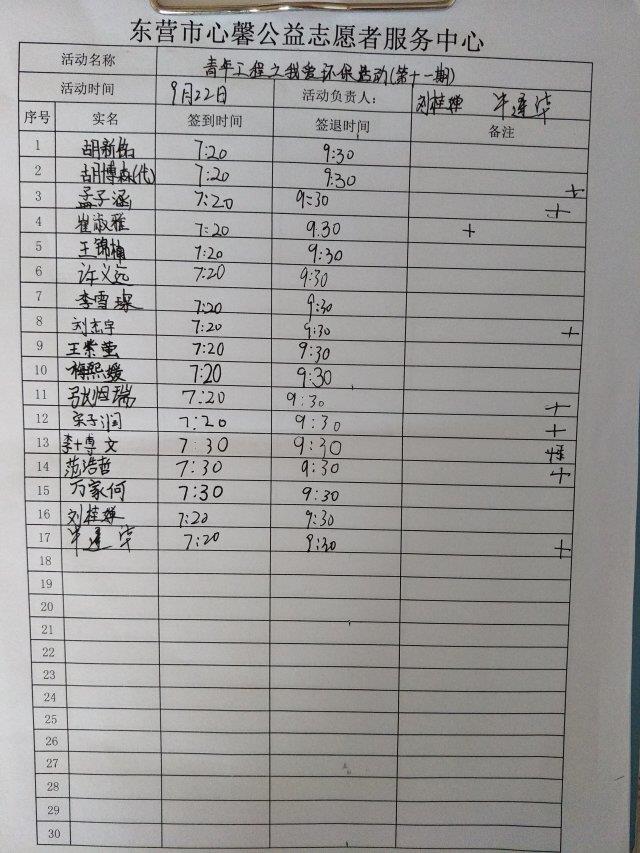 东营市心馨公益志愿者服务中心
活动名称 青年工程之我爱环保活动(第十一期)
活动时间 9月22日 活动负责人: 刘桂婵 牛莲华
序号 实名 签到时间 签退时间 备注
1 胡新佑 7:20 9:30
2 胡博森(代) 7:20 9:30 +
3 孟子涵 7:20 9:30 +
4 崔淑雅 7:20 9:30 +
5 王锦楠 7:20 9:30
6 许义远 7:20 9:30
7 李雪琛 7:20 9:30
8 刘杰宇 7:20 9:30 +
9 王紫萤 7:20 9:30
10 梅熙媛 7:20 9:30
11 张恒瑞 7:20 9:30 +
12 宋子润 7:20 9:30 +
13 李博文 7:30 9:30
14 范浩哲 7:30 9:30 +
15 万家何 7:30 9:30
16 刘桂婵 7:20 9:30
17 牛莲华 7:20 9:30 +
18
19
20
21
22
23
24
25
26
27
28
29
30